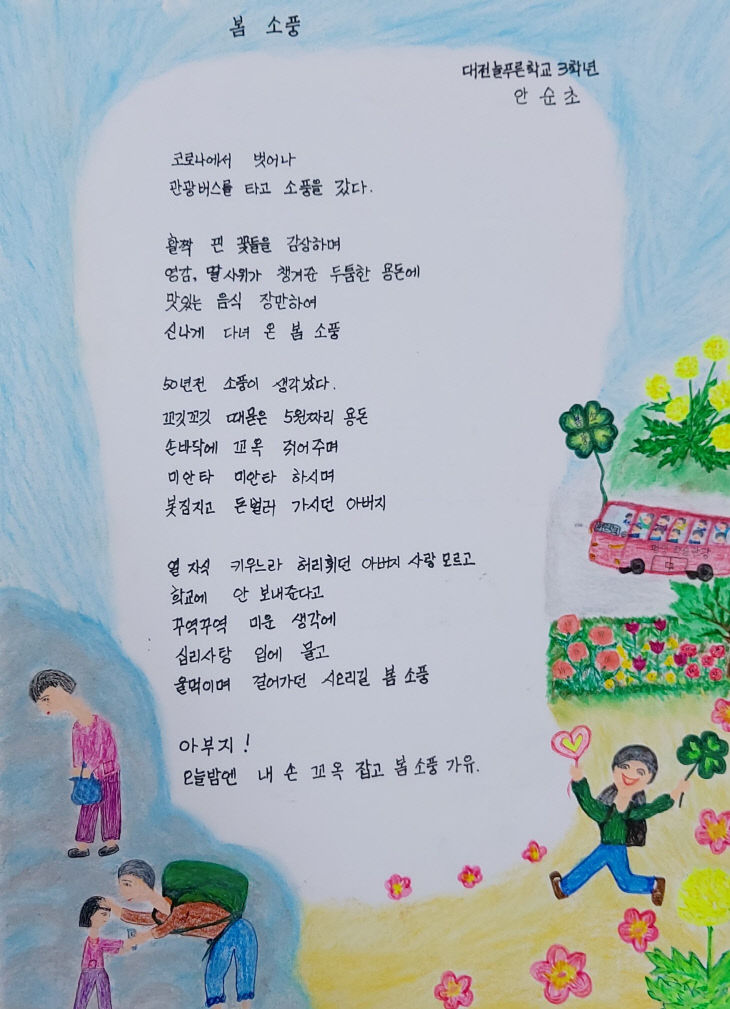 봄 소풍
대전늘푸른학교 3학년
안 순 초
코로나에서 벗어나
관광버스를 타고 소풍을 갔다.
활짝 핀 꽃들을 감상하며
영감, 딸 사위가 챙겨준 두툼한 용돈에
맛있는 음식 장만하여
신나게 다녀 온 봄 소풍
50년전 소풍이 생각났다.
꼬깃꼬깃 때묻은 5원짜리 용돈
손바닥에 꼬옥 쥐어주며
미안타 미안타 하시며
봇짐지고 돈벌러 가시던 아버지
열 자식 키우느라 허리휘던 아버지 사랑 모르고
학교에 안 보내준다고
꾸역꾸역 미운 생각에
십리사탕 입에 물고
울먹이며 걸어가던 시오리길 봄 소풍
아부지!
오늘밤엔 내 손 꼬옥 잡고 봄 소풍 가유.